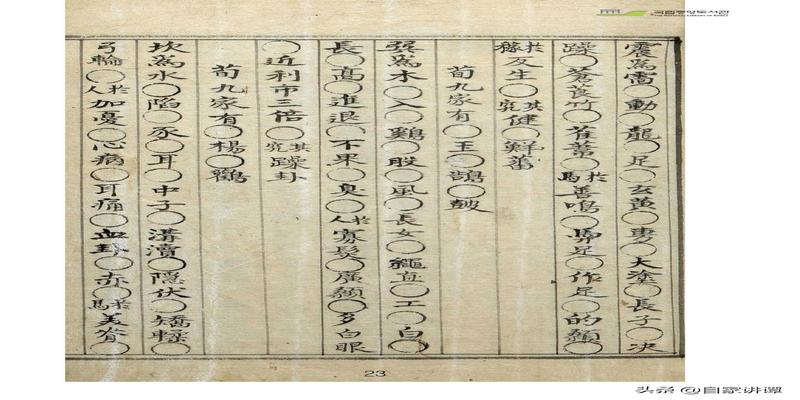 국립중앙도서관
THE NATIONAL LIBRARY OF KOREA
震爲雷○動○龍○足○玄黃○旉○大塗○長子○决
躁○蒼莨竹○萑葦○於馬善鳴○馵足○作足○的顙
於稼反生○其究健○鮮蕃
荀九家有○王○鵠○皷
巽爲木○入○鷄○股○風○長女○繩直○工○白○
長○高○進退○不果○臭○於人寡髮○廣顙○多白眼
○近利市三倍○其究躁卦
荀九家有○楊○鸛
坎爲水○陷○豕○耳○中子○溝瀆○隱伏○矯輮○
弓輪○於人加憂○心病○耳痛○血卦○赤○於馬美脊○
23
头条 @自家讲谭